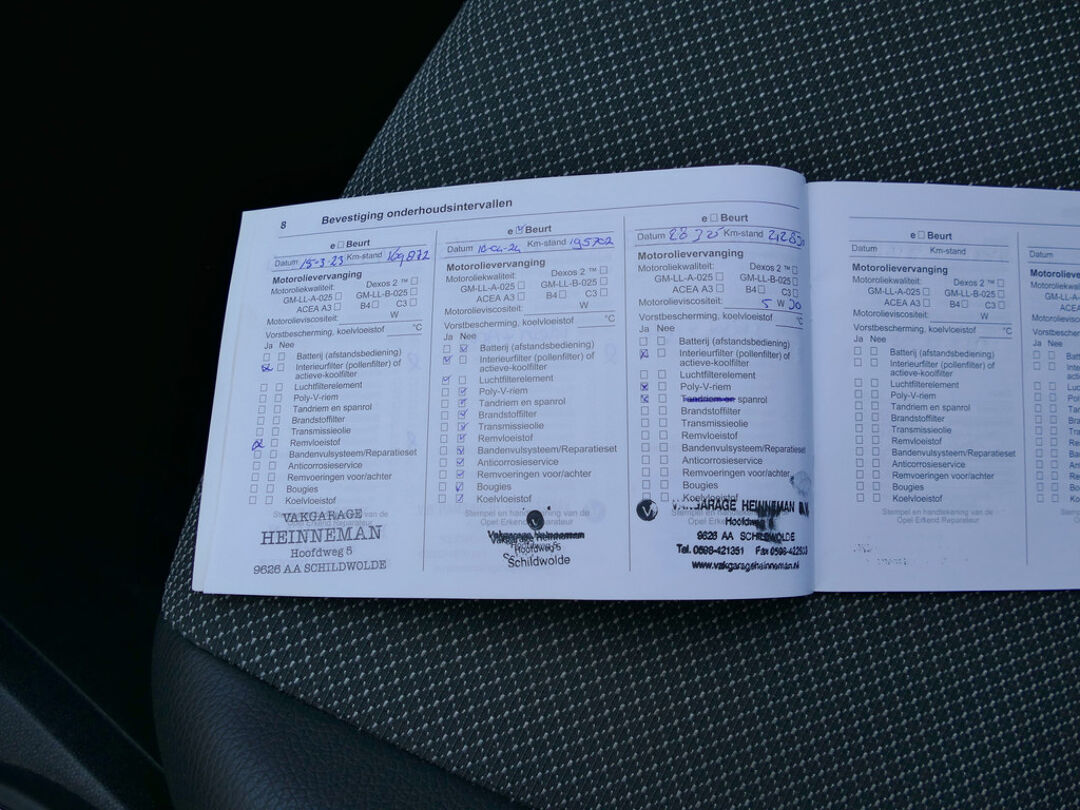 8 Bevestiging onderhoudsintervallen
e ☐ Beurt
Datum 15-3-23 Km-stand 169872
Motorolievervanging
Motoroliekwaliteit: Dexos 2 ™ ☐
GM-LL-A-025 ☐ GM-LL-B-025 ☐
ACEA A3 ☐ B4 ☐ C3 ☐
Motorolieviscositeit: W
Vorstbescherming, koelvloeistof °C
Ja Nee
Batterij (afstandsbediening)
Interieurfilter (pollenfilter) of
actieve-koolfilter
Luchtfilterelement
Poly-V-riem
Tandriem en spanrol
Brandstoffilter
Transmissieolie
Remvloeistof
Bandenvulsysteem/Reparatieset
Anticorrosieservice
Remvoeringen voor/achter
Bougies
Koelvloeistof
VAKGARAGE
HEINNEMAN
Hoofdweg 5
9626 AA SCHILDWOLDE
e ☑ Beurt
Datum 10-04-24 Km-stand 195702
Motorolievervanging
Motoroliekwaliteit: Dexos 2 ™ ☐
GM-LL-A-025 ☐ GM-LL-B-025 ☐
ACEA A3 ☐ B4 ☐ C3 ☐
Motorolieviscositeit: W
Vorstbescherming, koelvloeistof °C
Ja Nee
Batterij (afstandsbediening)
Interieurfilter (pollenfilter) of
actieve-koolfilter
Luchtfilterelement
Poly-V-riem
Tandriem en spanrol
Brandstoffilter
Transmissieolie
Remvloeistof
Bandenvulsysteem/Reparatieset
Anticorrosieservice
Remvoeringen voor/achter
Bougies
Koelvloeistof
Stempel en handtekening van de
Opel Erkend Reparateur
Vakgarage Heinneman
Hoofdweg 5
Schildwolde
e ☐ Beurt
Datum Km-stand
Motorolievervanging
Motoroliekwaliteit: Dexos 2 ™ ☐
GM-LL-A-025 ☐ GM-LL-B-025 ☐
ACEA A3 ☐ B4 ☐ C3 ☐
Motorolieviscositeit: 5 W 30
Vorstbescherming, koelvloeistof °C
Ja Nee
Batterij (afstandsbediening)
Interieurfilter (pollenfilter) of
actieve-koolfilter
Luchtfilterelement
Poly-V-riem
Tandriem en spanrol
Brandstoffilter
Transmissieolie
Remvloeistof
Bandenvulsysteem/Reparatieset
Anticorrosieservice
Remvoeringen voor/achter
Bougies
Koelvloeistof
VAKGARAGE HEINNEMAN B.V.
Hoofdweg
9626 AA SCHILDWOLDE
Tel. 0598-421351
www.vakgarageheinneman.nl
e ☐ Beurt
Datum Km-stand
Motorolievervanging
Motoroliekwaliteit: Dexos 2 ™ ☐
GM-LL-A-025 ☐ GM-LL-B-025 ☐
ACEA A3 ☐ B4 ☐ C3 ☐
Motorolieviscositeit: W
Vorstbescherming, koelvloeistof °C
Ja Nee
Batterij (afstandsbediening)
Interieurfilter (pollenfilter) of
actieve-koolfilter
Luchtfilterelement
Poly-V-riem
Tandriem en spanrol
Brandstoffilter
Transmissieolie
Remvloeistof
Bandenvulsysteem/Reparatieset
Anticorrosieservice
Remvoeringen voor/achter
Bougies
Koelvloeistof
Stempel en handtekening van de
Opel Erkend Reparateur
Datum
Ja Nee